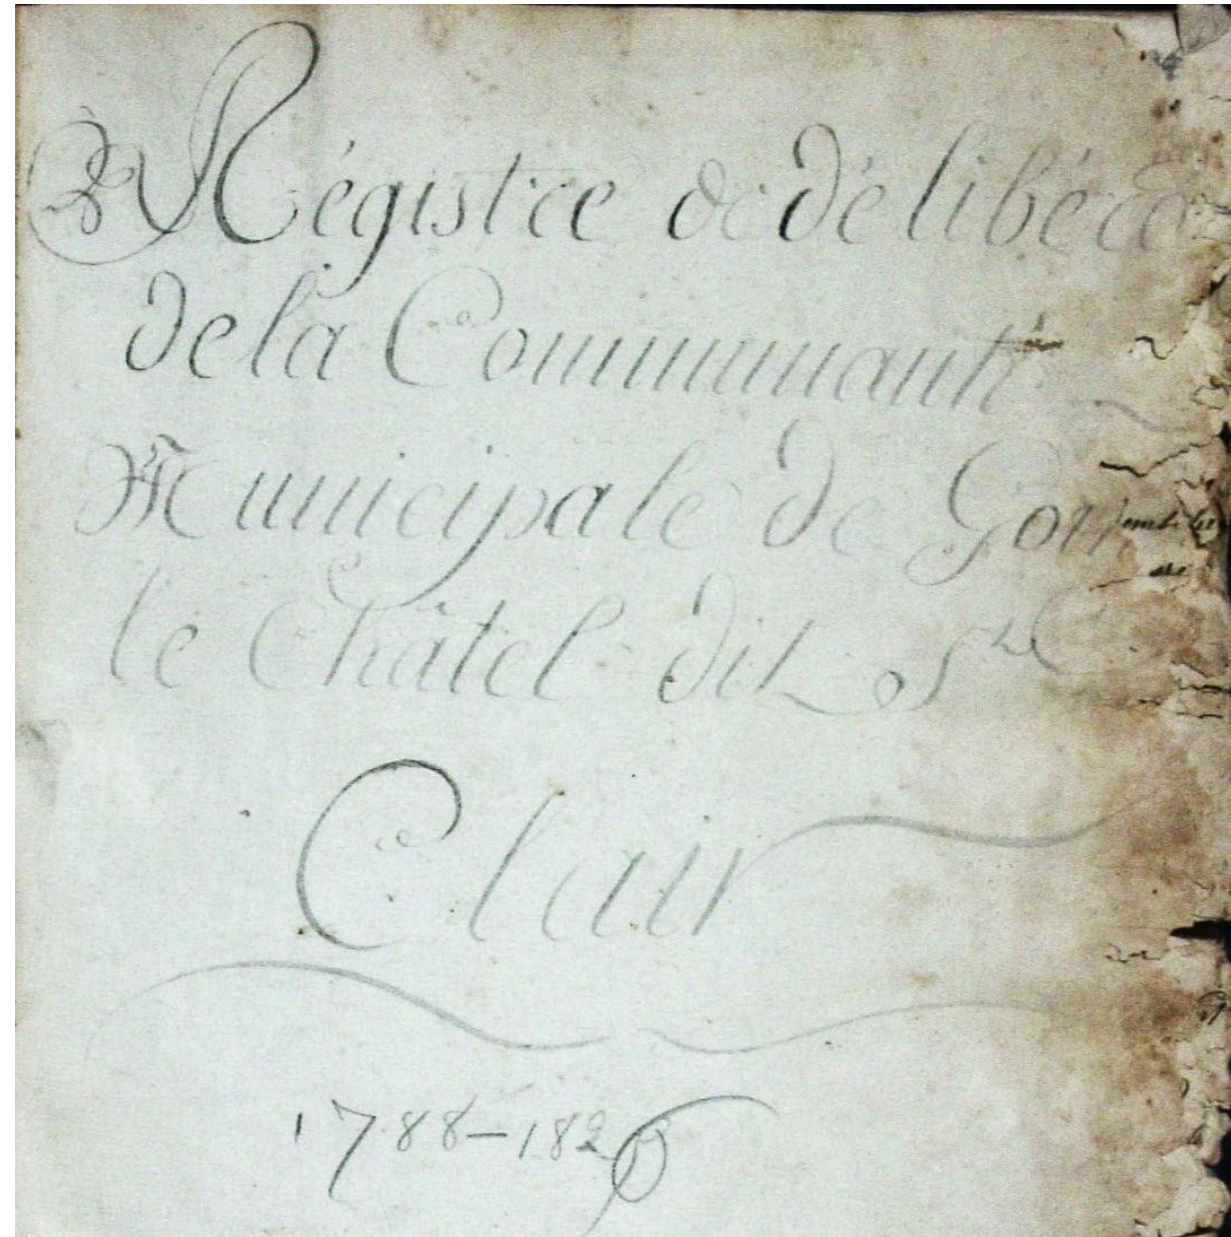 Régistre de délibéra
de la Communauté
Municipale de Gou
le Châtel dit St
Clair
1788-1826